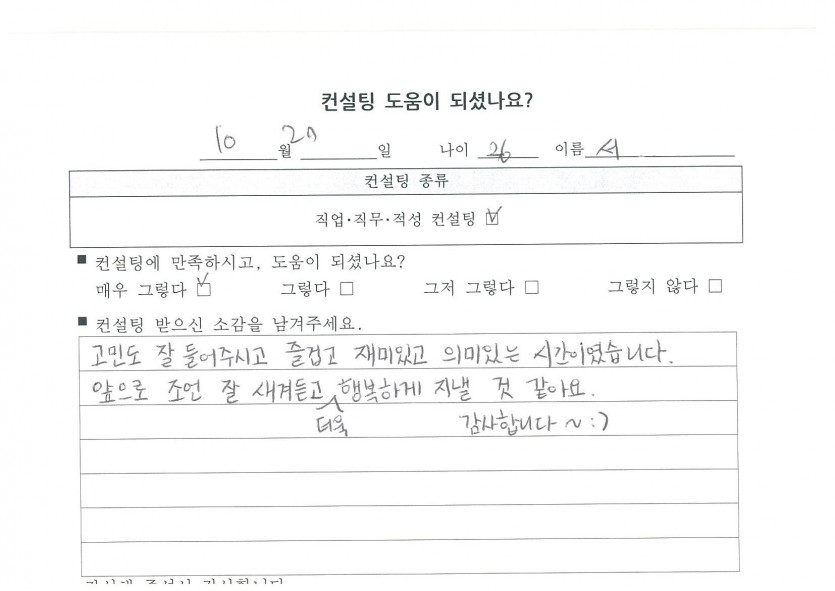 컨설팅 도움이 되셨나요?
10 월 20 일 나이 26 이름 서
컨설팅 종류
직업·직무·적성 컨설팅 ☑
■ 컨설팅에 만족하시고, 도움이 되셨나요?
매우 그렇다 ☑ 그렇다 □ 그저 그렇다 □ 그렇지 않다 □
■ 컨설팅 받으신 소감을 남겨주세요.
고민도 잘 들어주시고 즐겁고 재미있고 의미있는 시간이였습니다.
앞으로 조언 잘 새겨듣고 행복하게 지낼 것 같아요.
더욱 감사합니다 ~ :)